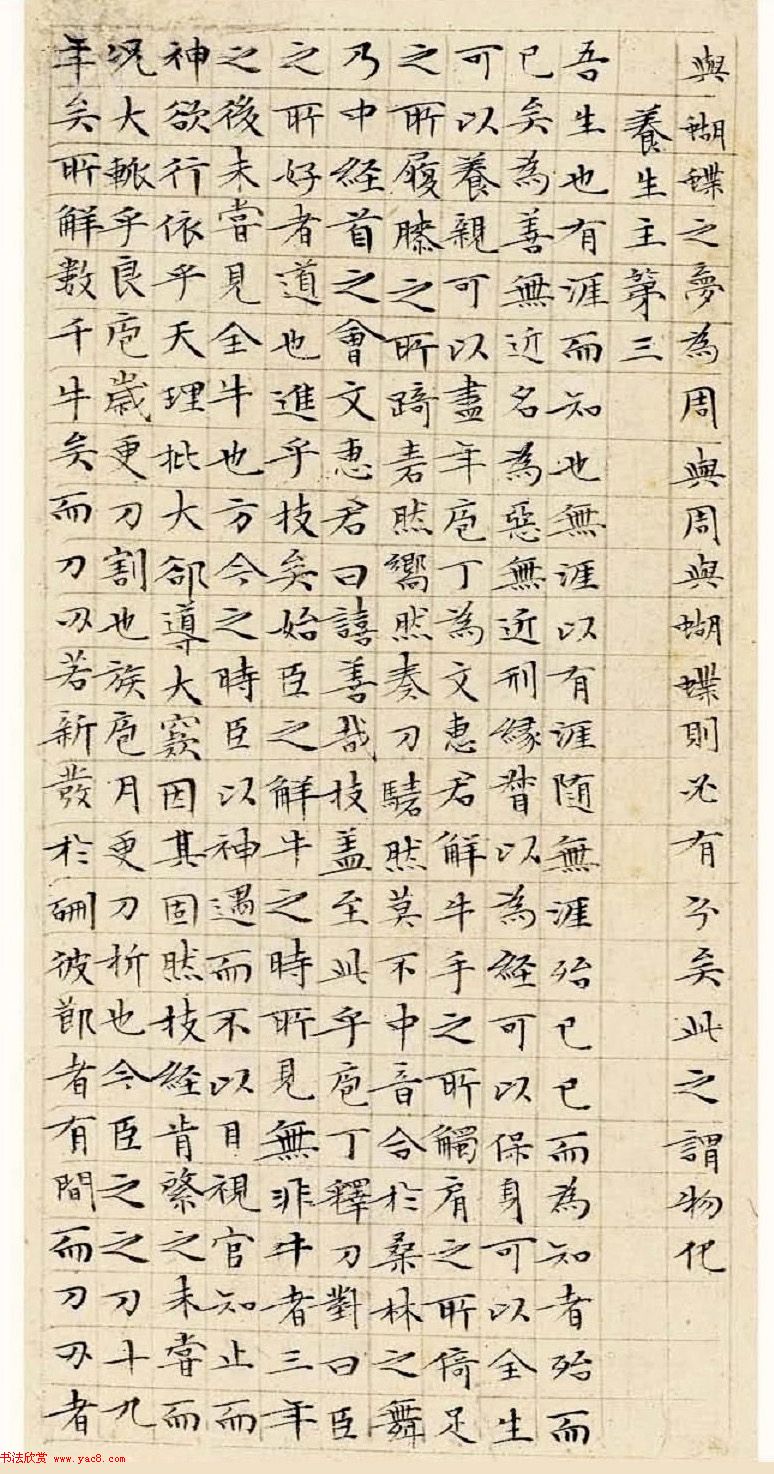 與蝴蝶之夢為周與周與蝴蝶則必有分矣此之謂物化
養生主第三
吾生也有涯而知也無涯以有涯随無涯殆已已而為知者殆而
已矣為善無近名為惡無近刑緣督以為経可以保身可以全生
可以養親可以盡年庖丁為文惠君解牛手之所觸肩之所倚足
之所履膝之所踦砉然嚮然奏刀騞然莫不中音合於桑林之舞
乃中経首之會文惠君曰譆善哉技盖至此乎庖丁釋刀對曰臣
之所好者道也進乎技矣始臣之解牛之時所見無非牛者三年
之後未嘗見全牛也方今之時臣以神遇而不以目視官知止而
神欲行依乎天理批大郤導大窾因其固然技経肯綮之未嘗而
况大軱乎良庖歲更刀割也族庖月更刀折也今臣之之刀十九
年矣所解數千牛矣而刀刃若新發於硎彼節者有間而刀刃者
书法欣赏 www.yac8.com